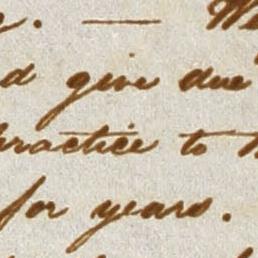 . — We
d give due
practice to
for years.